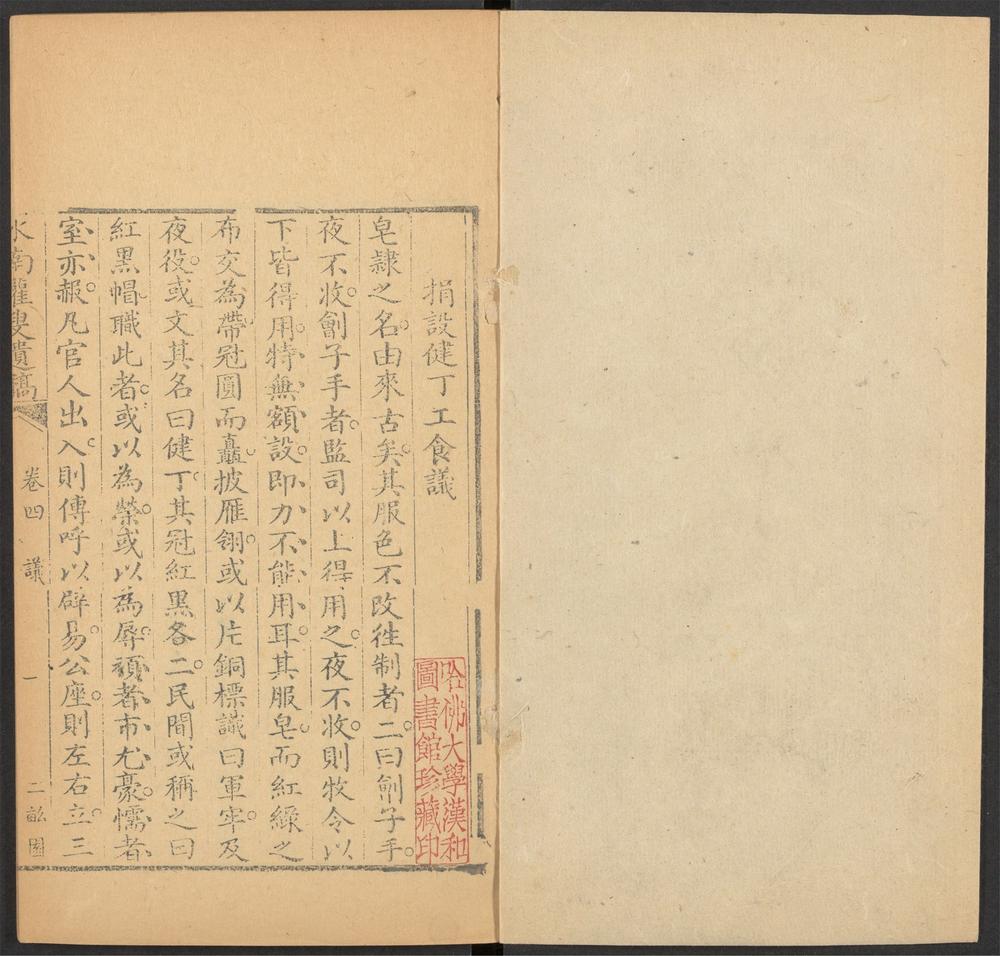 捐設健丁工食議
皂隸之名由來古矣其服色不改徃制者二曰劊子手
夜不收劊子手者監司以上得用之夜不收則牧令以
下皆得用特無額設即力不能用耳其服皂而紅繰之
布交為帶冠圓而矗披雁翎或以片銅標識曰軍牢及
夜役或文其名曰健丁其冠紅黑各二民間或稱之曰
紅黑帽職此者或以為榮或以為辱領者市尤豪懦者
室亦赧凡官人出入則傳呼以辟易公座則左右立三
水南灌叟遺稿
卷四
議
一
二㽗園
哈佛大學漢和
圖書館珍藏印